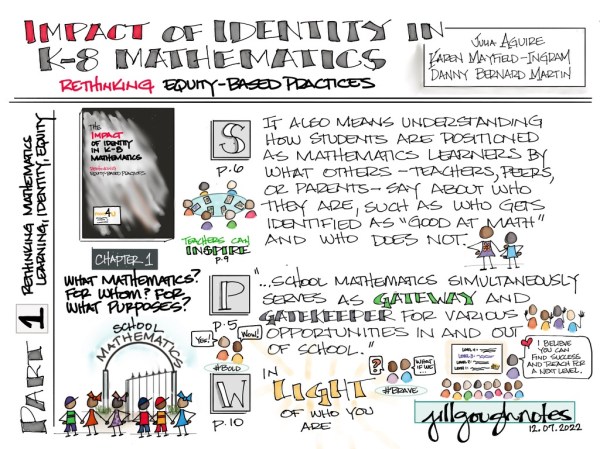 IMPACT OF IDENTITY IN
K-8 MATHEMATICS
RETHINKING EQUITY-BASED PRACTICES
JULIA AGUIRE
KAREN MAYFIELD-INGRAM
DANNY BERNARD MARTIN
PART 1
RETHINKING MATHEMATICS
LEARNING, IDENTITY, EQUITY
THE
IMPACT
OF IDENTITY
IN K-8
MATHEMATICS
RETHINKING
EQUITY-BASED PRACTICES
CHAPTER 1
WHAT MATHEMATICS?
FOR WHOM? FOR
WHAT PURPOSES?
SCHOOL
MATHEMATICS
S
P. 6
TEACHERS CAN
INSPIRE
P. 9
IT ALSO MEANS UNDERSTANDING
HOW STUDENTS ARE POSITIONED
AS MATHEMATICS LEARNERS BY
WHAT OTHERS - TEACHERS, PEERS,
OR PARENTS - SAY ABOUT WHO
THEY ARE, SUCH AS WHO GETS
IDENTIFIED AS "GOOD AT MATH"
AND WHO DOES NOT.
P
P. 5
"...SCHOOL MATHEMATICS SIMULTANEOUSLY
SERVES AS GATEWAY AND
GATEKEEPER FOR VARIOUS
OPPORTUNITIES IN AND OUT
OF SCHOOL."
YES!
WOW!
#BOLD
W
P. 10
IN
LIGHT
OF WHO YOU
ARE
?
WHAT
IF WE...
#BRAVE
LEVEL 4
LEVEL 3
LEVEL 2
LEVEL 1
I BELIEVE
YOU CAN
FIND SUCCESS
AND REACH FOR
A NEXT LEVEL.
jillgoughnotes
12.07.2022